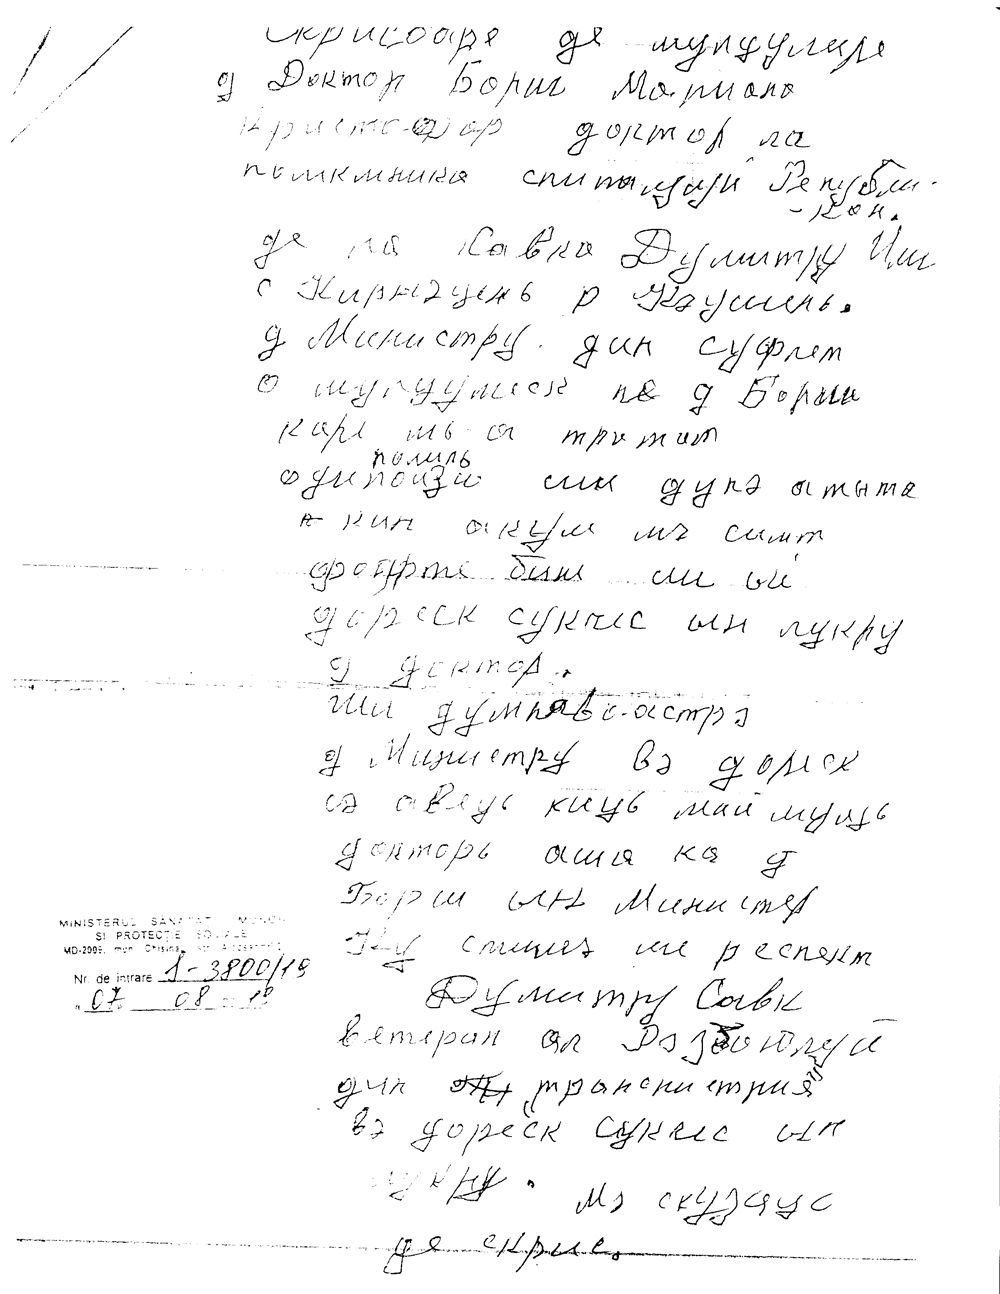 Скрисоаре де мулцумире
д Доктор Бориш Мариана
Кристофор доктор ла
поликлиника спиталулуй Републи-
-кан.
де ла Савка Думитру Иш
с Кирнэцень р Кэушень.
д Министру. дин суфлет
о мулцумеск пе д Бориш
каре мь-а тратат
полипь
одипоизи син дупэ атыта
кин акум мэ симт
фоарте бине ши ый
дореск сукчес ын лукру
д доктор.
Ши думнавоастрэ
д Министру вэ дореск
сэ авець кыць май мулць
докторь аша ка д
Бориш ын Министер
Ку стимэ ши респект
Думитру Савк
ветеран ал Рэзбоюлуй
дин транснистрия
вэ дореск сукчес ын
лукру. Мэ скузаць
де скрис.
MINISTERUL SĂNĂTĂȚII MUNCII
ȘI PROTECȚIEI SOCIALE
MD-2009, mun. Chișinău, str. A
Nr. de intrare 1-3800/19
"07" 08 19